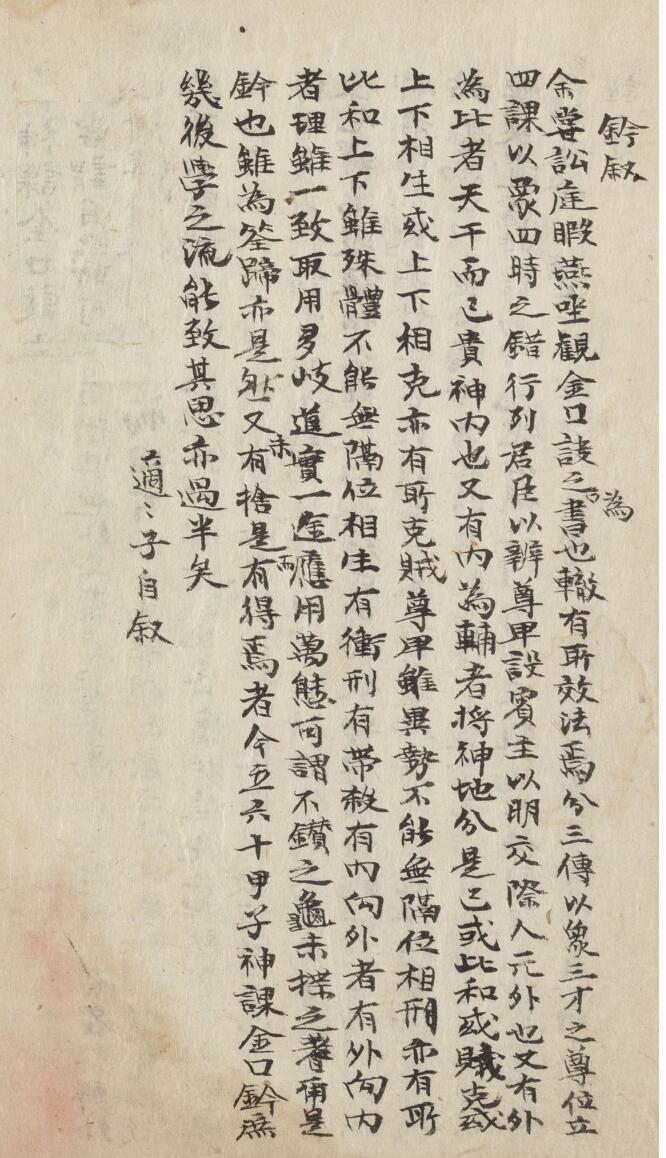 鈐敘
余嘗訟庭暇燕坐觀金口訣之書也為轍有所效法焉分三傳以象三才之尊位立
四課以象四時之錯行列君臣以辨尊卑設賓主以明交際人元外也又有外
為比者天干而已貴神內也又有內為輔者將神地分是已或比和或賊克或
上下相生或上下相克亦有所克賊尊卑雖異勢不能無隔位相刑亦有所
比和上下雖殊體不能無隔位相生有衝刑有帶殺有內向外者有外向內
者理雖一致取用多岐進實一途應用萬態可謂不鑽之龜未揲之蓍爾是
鈐也雖為筌蹄亦是然又有未捨是而有得焉者今五六十甲子神課金口鈐庶
幾後學之流能致其思亦過半矣
適〻子自敘